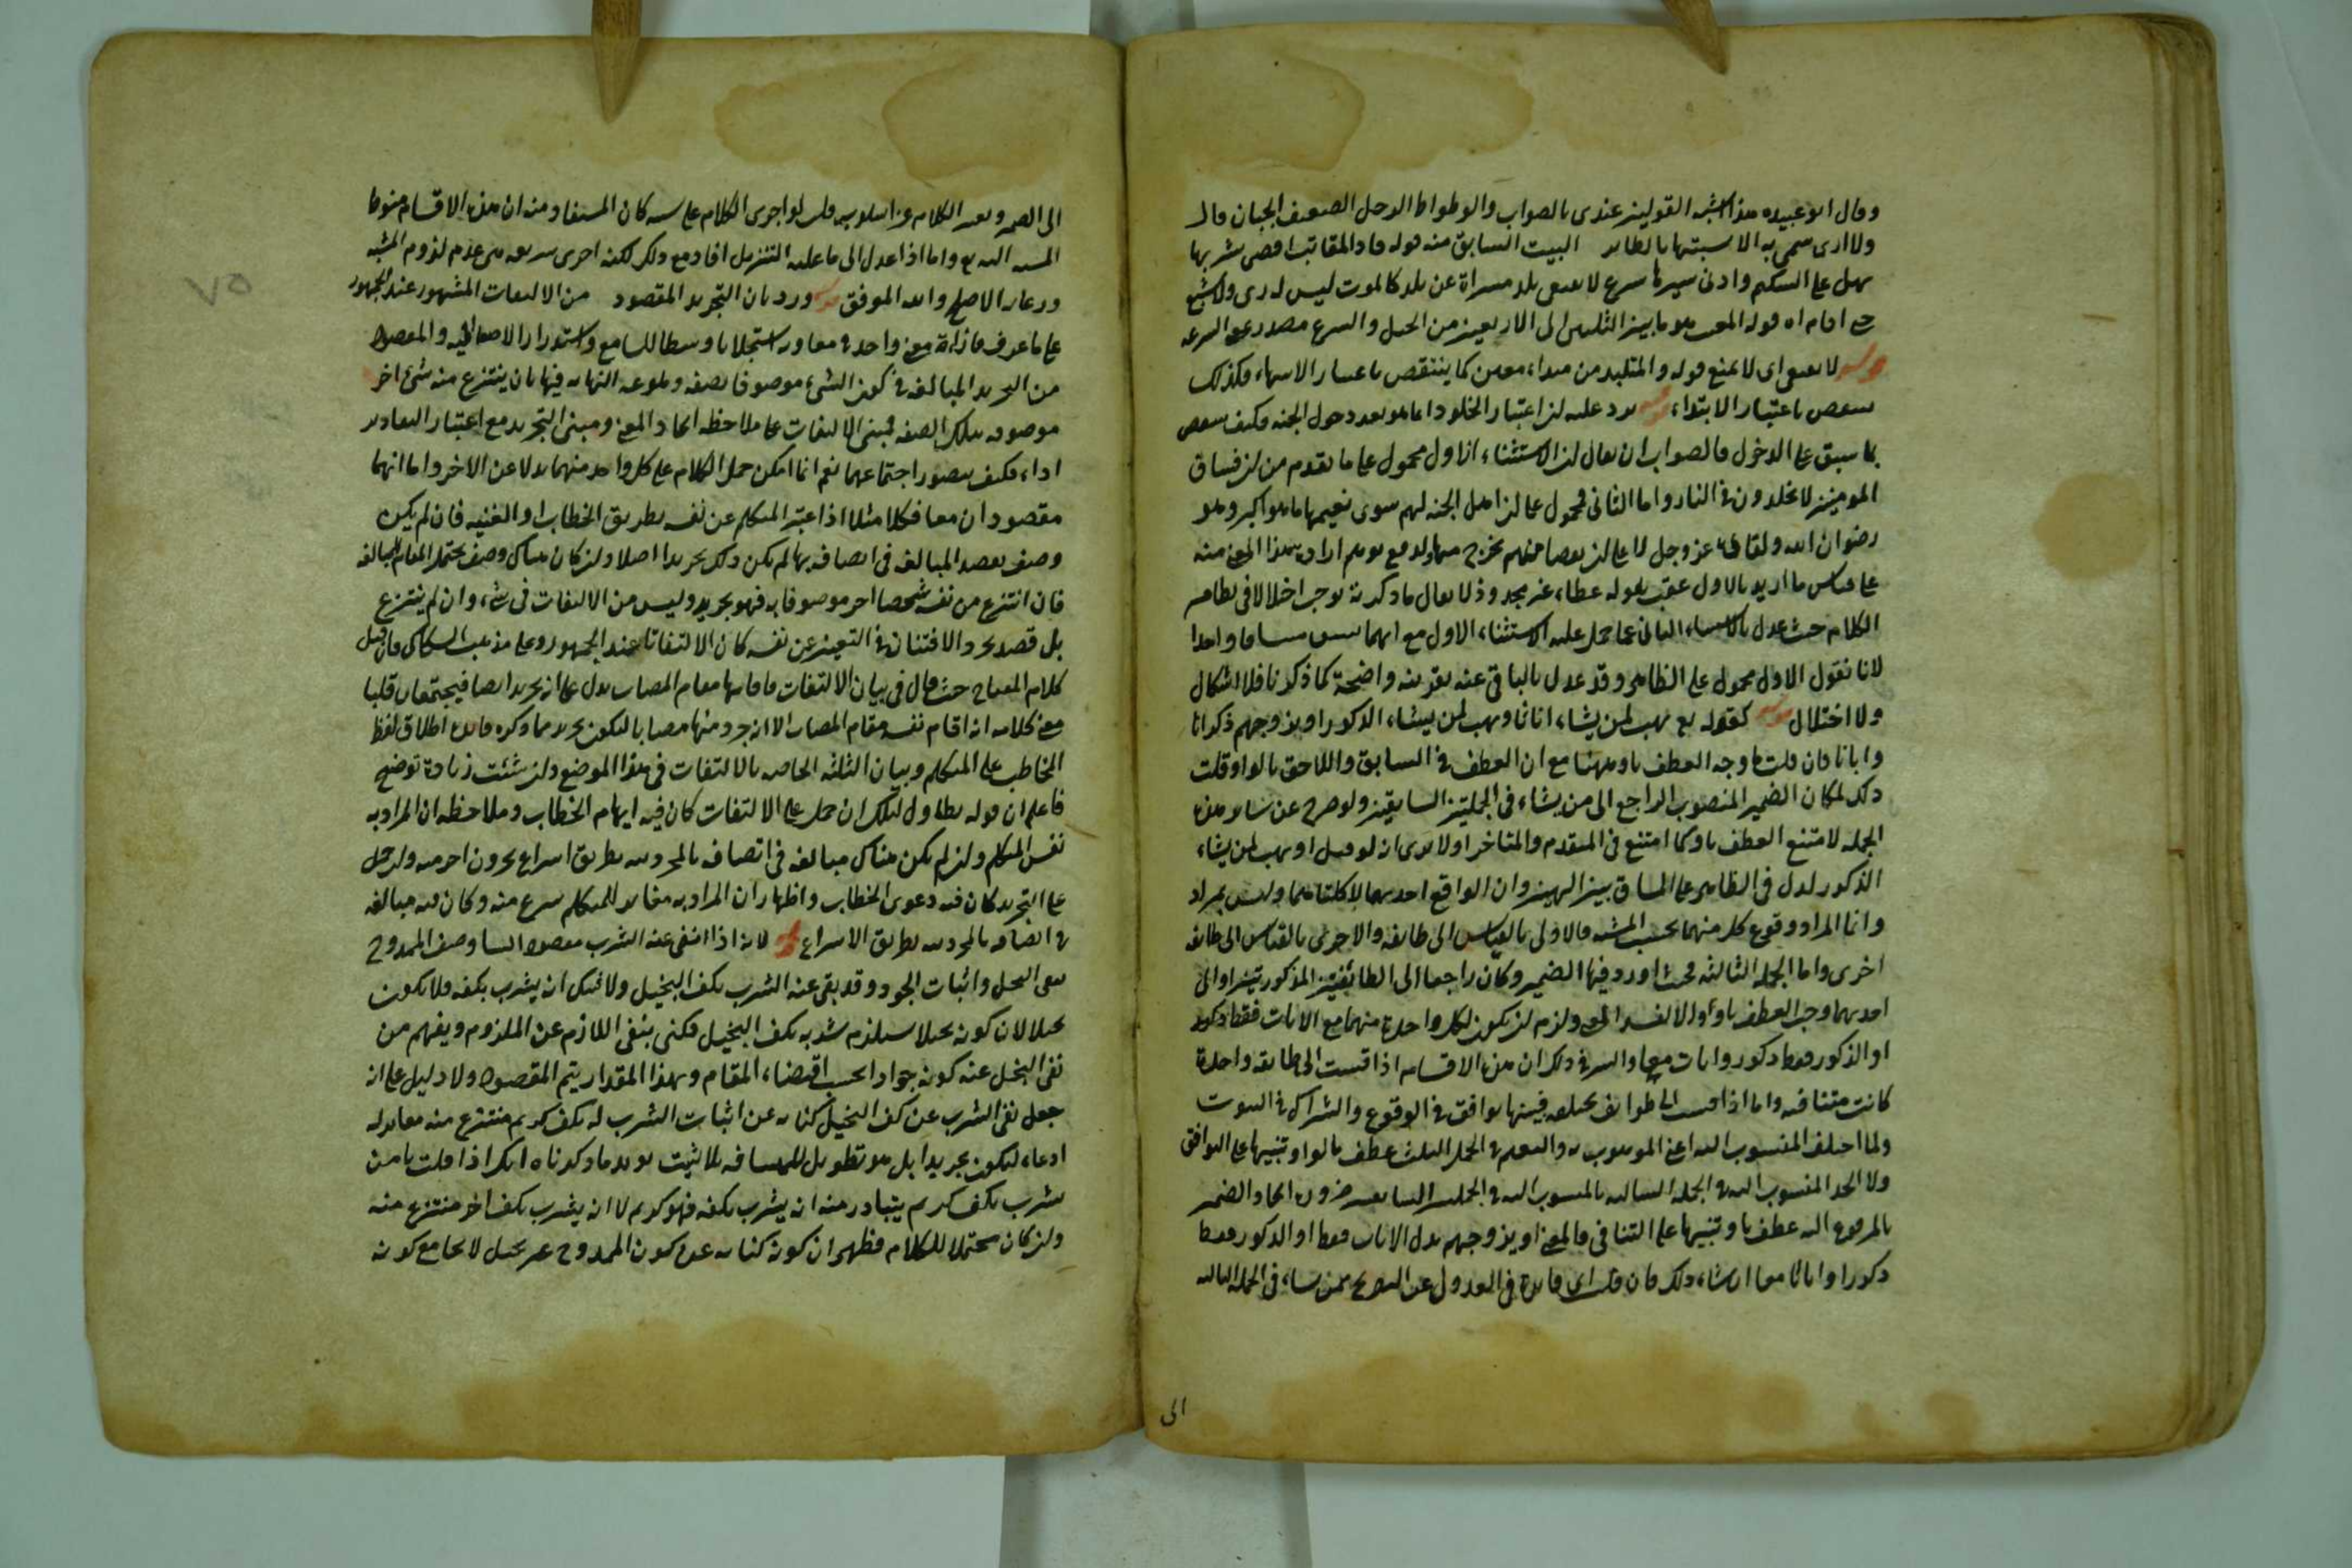 وقال ابو عبيده هذا اشبه القولين عندى بالصواب والوطواط الرجل الضعيف الجبان قال
ولا ارى سمى به الا تشبيها بالطاير البيت السابق منه قوله قاد المقانب اقصى شربها
نهل على الشكيم وادنى سيرها سرع لا يعتقى بلد مسراه عن بلد كالموت ليس له رى ولا شبع
حتى اقام اه قوله المقنب هو ما بين الثلثين الى الاربعين من الخيل والسرع مصدر بمعنى السرعه
قوله لا يعتقى اى لا يمنع قوله والمتلبد من مبداء معين كما ينتقص باعتبار الانتهاء فكذلك
ينتقص باعتبار الابتداء قوله يرد عليه ان اعتبار الخلود انما هو بعد دخول الجنه فكيف ينتقص
بما سبق على الدخول فالصواب ان يقال ان الاستثناء الاول محمول على ما تقدم من ان فساق
المومنين لا يخلدون فى النار واما الثانى فمحمول على ان اهل الجنه لهم سوى نعيمها ما هو اكبر وهو
رضوان الله ولقاؤه عز وجل لا على ان بعضا منهم يخرج منها ولدفع توهم ارادة هذا المعنى منه
على قياس ما اريد بالاول عقب بقوله عطاء غير مجذوذ لا يقال ما ذكرته يوجب اختلالا فى نظام
الكلام حيث عدل بالاستثناء الثانى عما حمل عليه الاستثناء الاول مع انهما سيقا مساقا واحدا
لانا نقول الاول محمول على الظاهر وقد عدل بالباقى عنه بقرينه واضحة كما ذكرنا فلا اشكال
ولا اختلال قوله كقوله تع يهب لمن يشاء اناثا ويهب لمن يشاء الذكور او يزوجهم ذكرانا
واناثا فان قلت ما وجه العطف باو ههنا مع ان العطف فى السابق واللاحق بالواو قلت
ذلك لمكان الضمير المنصوب الراجع الى من يشاء فى الجملتين السابقتين ولو صرح عن يشاء وهذه
الجمله لامتنع العطف باو كما امتنع فى المتقدم والمتاخر اولا يرى انه لو قيل او يهب لمن يشاء
الذكور لدل فى الظاهر على المنافاة بين الهبتين وان الواقع احديهما لا كلتاهما وليس بمراد
وانما المراد وقوع كل منهما بحسب المشيه فالاولى بالقياس الى طائفه والاخرى بالقياس الى طائفه
اخرى واما الجمله الثالثه فحيث اورد فيها الضمير وكان راجعا الى الطائفتين المذكورتين او الى
احديهما وجب العطف باو والا لفسد المعنى ولزم ان يكون لكل واحدة منهما مع الاناث فقط ذكور
او الذكور فقط ذكور واناث معا والسر فى ذلك ان هذه الاقسام اذا قيست الى طائفه واحدة
كانت متنافيه واما اذا قيست الى طوايف مختلفه فبينها توافق فى الوقوع واشتراك فى الثبوت
ولما اختلف المنسوب اليه اعنى الموهوب له والمعلم فى الجمل الثلث عطف بالواو تنبيها على التوافق
ولا اتحد المنسوب اليه فى الجمله الثالثه بالمنسوب اليه فى الجملتين السابقتين ضرورة اتحاد الضمير
بالمرجوع اليه عطف باو تنبيها على التنافى فالمعنى او يزوجهم بدل الاناث فقط او الذكور فقط
ذكورا واناثا معا ان شاء ذلك فان قلت اى فائدة فى العدول عن التصريح بمن يشاء فى الجمله الثالثه
الى
الى الضمير وتغيير الكلام عن اسلوبه قلت لو اجرى الكلام على سننه كان المستفاد منه ان هذه الاقسام منوطة
المشيه الى الله تع واما اذا عدل الى ما عليه التنزيل افاد مع ذلك نكته اخرى شريفه هى عدم لزوم المشيه
ورعاية الاصلح والله الموفق قوله ورد بان التجريد المقصود من الالتفات المشهور عند الجمهور
على ما عرف ما اراده معنى واحد فى معاور استجلابا وسطا للسامع واستدرارا لاصغائه والمقصود
من التجريد المبالغه فى كون الشئ موصوفا بصفه وبلوغه النهايه فيها بان ينتزع منه شئ اخر
موصوف بتلك الصفه فمبنى الالتفات على ملاحظه اتحاد المعنى ومبنى التجريد مع اعتبار التغاير
اداء فكيف يتصور اجتماعهما نعم انما امكن حمل الكلام على كل واحد منهما بدلا عن الاخر واما انهما
مقصودان معا فكلا مثلا اذا عبر المتكلم عن نفسه بطريق الخطاب او الغيبه فان لم يكن
وصف يقصد المبالغه فى اتصافه بها لم يكن ذلك تجريدا اصلا وان كان هناك وصف يحتمل المقام المبالغه
فان انتزع من نفسه شخصا اخر موصوفا به فهو تجريد وليس من الالتفات فى شئ وان لم ينتزع
بل قصد مجرد الافتنان فى التعبير عن نفسه كان الالتفاتا عند الجمهور وعلى مذهب السكاكى فان قيل
كلام المفتاح حيث قال فى بيان الالتفات فاقامها مقام المصاب يدل على انه تجريد ايضا فيجتمعان قلنا
معنى كلامه انه اقام نفسه مقام المصاب لا انه جرد منها مصابا ليكون تجريدا مما ذكره فائدة اطلاق لفظ
المخاطب على المتكلم وبيان الثلثه الخاصه بالالتفات فى هذا الموضع وان شئت زيادة توضيح
فاعلم ان قوله تطاول ليلك ان حمل على الالتفات كان فيه ايهام الخطاب وملاحظه ان المراد به
نفس المتكلم وان لم يكن هناك مبالغه فى اتصافه بالمحزونيه بطريق انتزاع محزون اخر منه وان حمل
على التجريد كان فيه دعوى الخطاب واظهار ان المراد به مغاير للمتكلم منتزع منه وكان فيه مبالغه
فى اتصافه بالمحزونيه بطريق الانتزاع قوله لانه اذا انتفى عنه الشرب مقصود الشاعر وصف الممدوح
بنفى البخل واثبات الجود وقد نفى عنه الشرب بكف البخيل ولا شك ان يشرب بكفه فلا يكون
بخيلا لان كونه بخيلا يستلزم شربه بكف البخيل فكنى بنفى اللازم عن الملزوم ويفهم من
نفى البخل عنه كونه جوادا بحسب اقتضاء المقام وبهذا المقدار يتم المقصود ولا دليل على انه
جعل نفى الشرب عن كف البخيل كنايه عن اثبات الشرب له بكف كريم منتزع منه مغاير له
ادعاء ليكون تجريدا بل هو تطويل للمسافه بلا ثبت يؤيد ما ذكرناه انك اذا قلت يا من
يشرب بكف كريم يتبادر منه انه يشرب بكفه فهو كريم لا انه يشرب بكف اخر منتزع منه
وان كان محتملا للكلام فظهر ان كونه كنايه عن كون الممدوح غير بخيل لا يجامع كونه